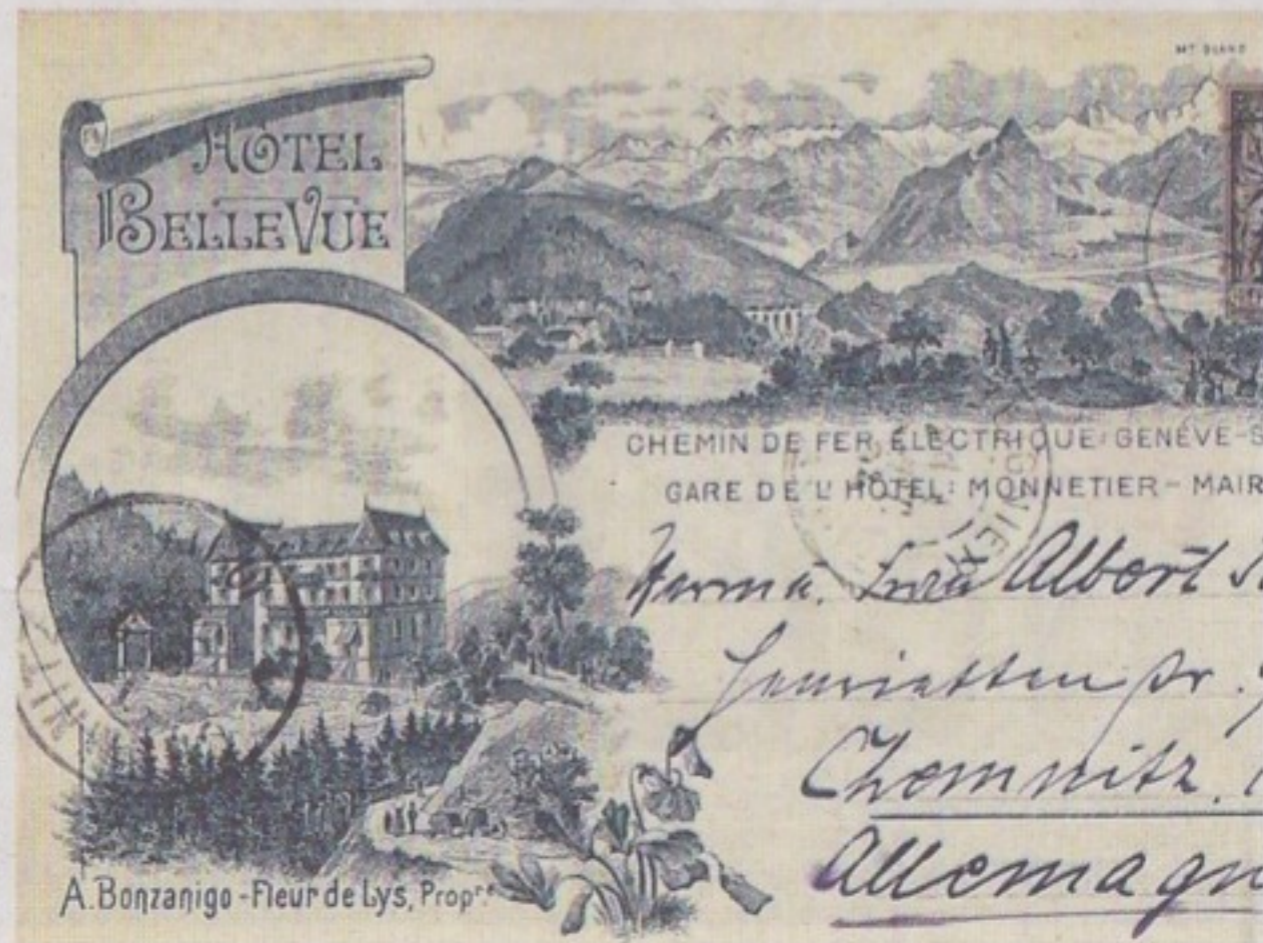 MT BLANC
HÔTEL
BELLEVUE
CHEMIN DE FER ÉLECTRIQUE: GENÈVE-S
GARE DE L'HÔTEL: MONNETIER - MAIR
Frau Albert
Henrietten str.
Chemnitz.
Allemagn
A. Bonzanigo - Fleur de Lys, Propre